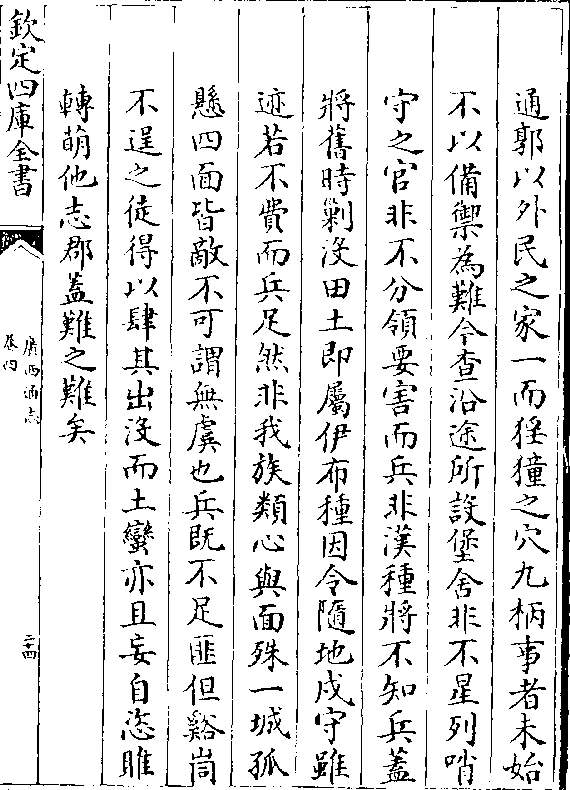 通郭以外民之家一而猺獞之穴九柄事者未始
不以備禦為難今查沿途所設堡舍非不星列哨
守之官非不分領要害而兵非漢種將不知兵蓋
將舊時剿沒田土即屬伊布種因令隨地戍守雖
迹若不費而兵足然非我族類心與面殊一城孤
懸四面皆敵不可謂無虞也兵既不足匪但谿峝
不逞之徒得以肆其出沒而土蠻亦且妄自恣睢
轉萌他志郡蓋難之難矣
欽定四庫全書
廣西通志
卷四
二十四